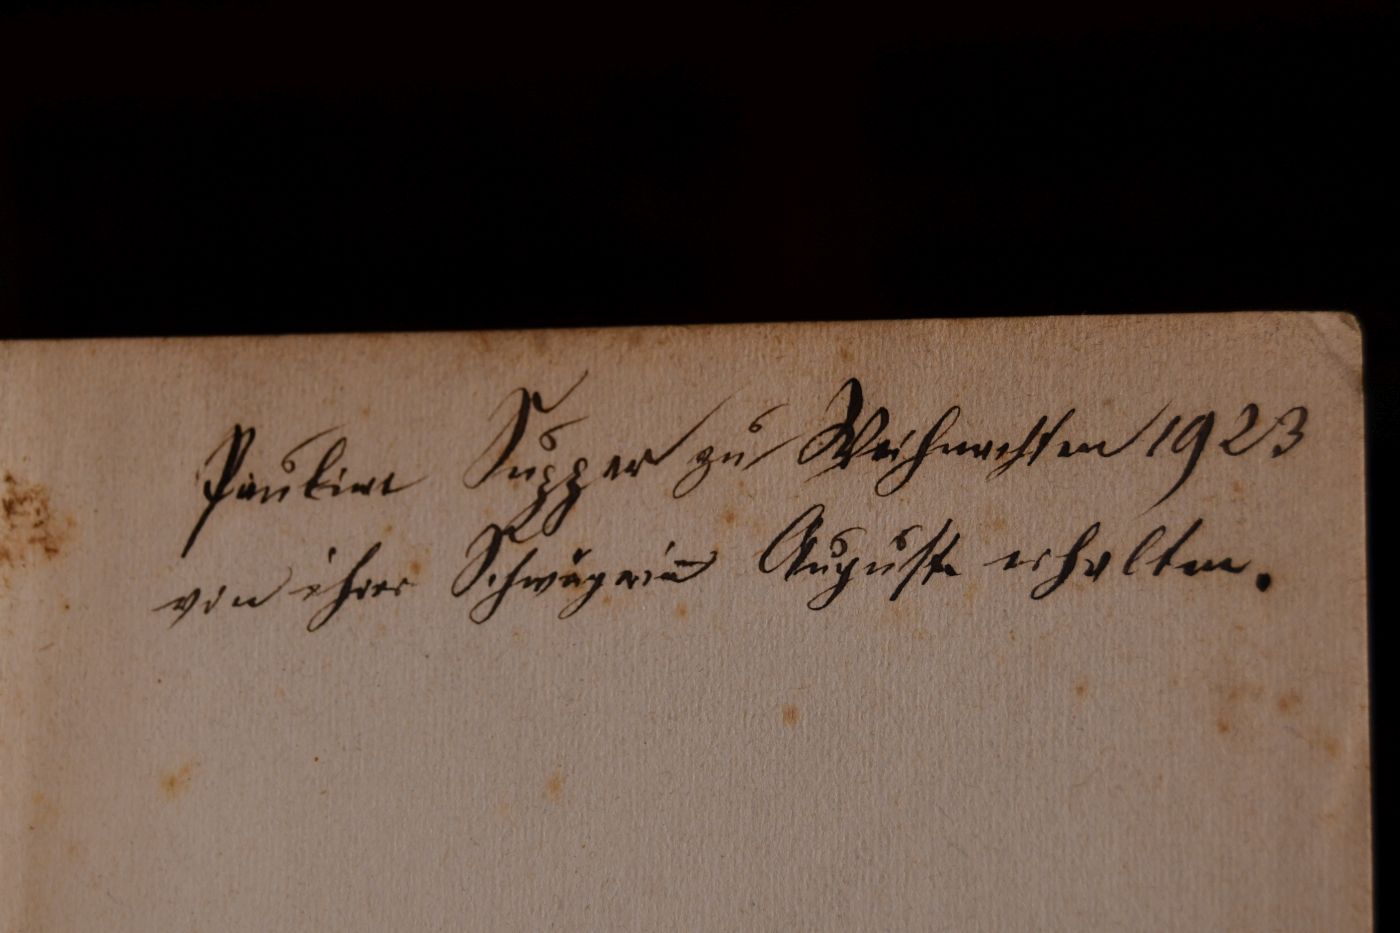 Pauline Supper zu Weihnachten 1923
von ihrer Schwägerin Auguste erhalten.